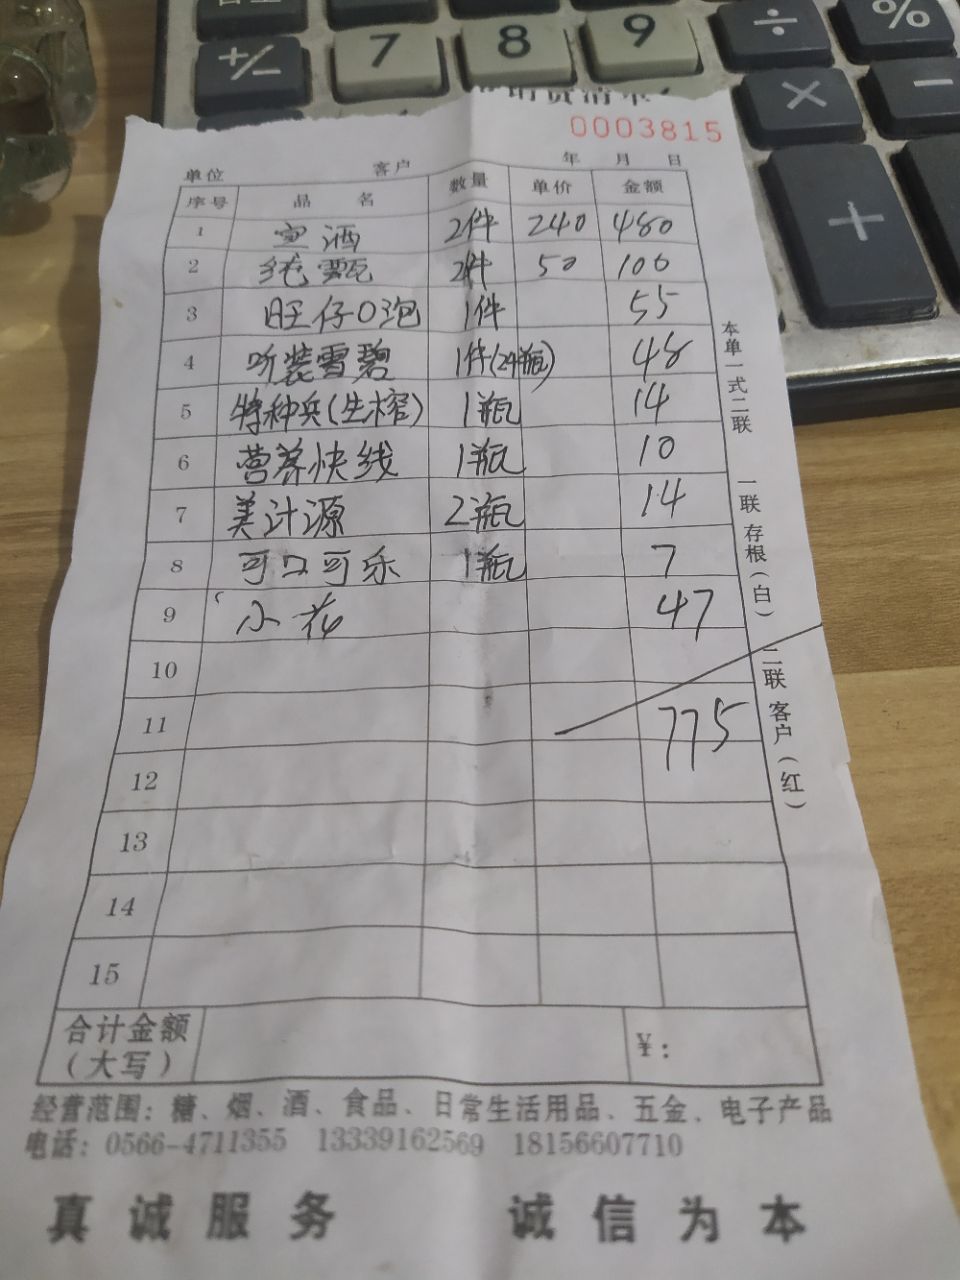 7 8 9 ÷ %
+/− × −
+
销货清单
0003815
单位 客户 年 月 日
序号 品 名 数量 单价 金额
1 宣酒 2件 240 480
2 纯甄 2件 50 100
3 旺仔O泡 1件 55
4 听装雪碧 1件(24瓶) 48
5 特种兵(生榨) 1瓶 14
6 营养快线 1瓶 10
7 美汁源 2瓶 14
8 可口可乐 1瓶 7
9 小花 47
10
11 775
12
13
14
15
合计金额
(大写) ¥:
本单一式二联 一联存根(白) 二联客户(红)
经营范围:糖、烟、酒、食品、日常生活用品、五金、电子产品
电话:0566-4711355 13339162569 18156607710
真诚服务 诚信为本